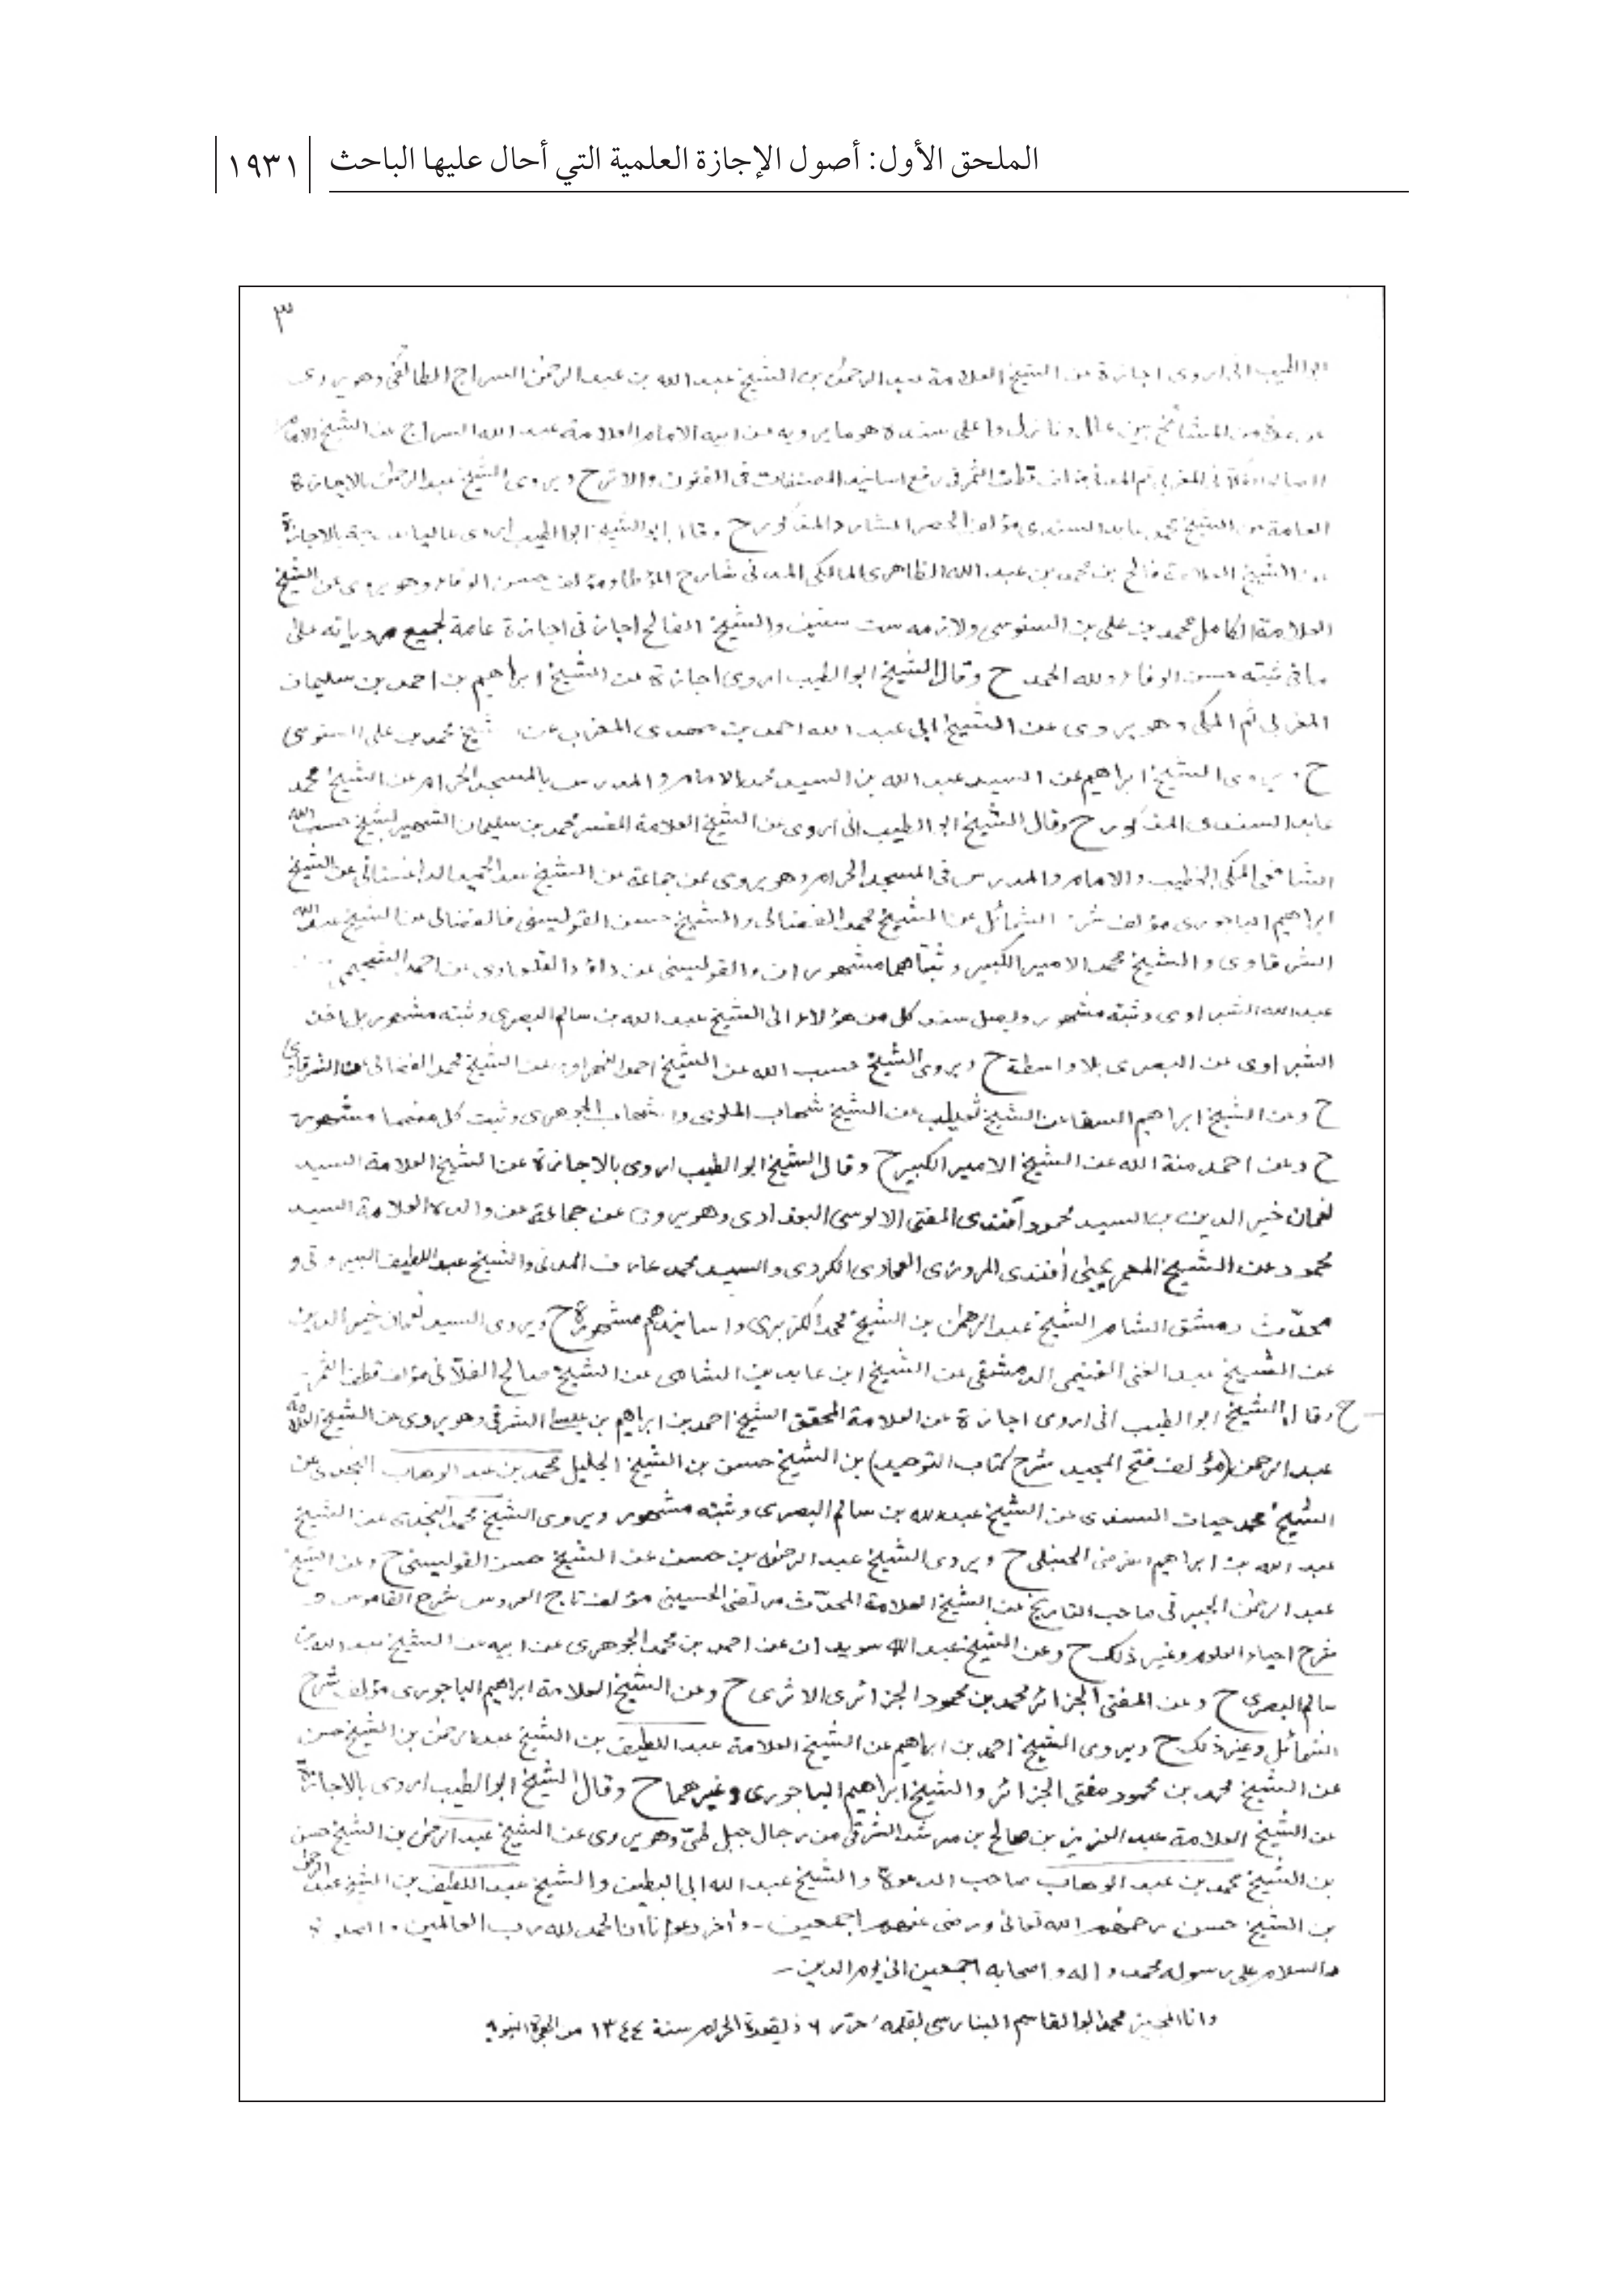 الملحق الأول: أصول الإجازة العلمية التي أحال عليها الباحث
١٩٣١
٣
ابو الطيب انى اروى اجازة عن الشيخ العلامة عبد الرحمن بن الشيخ عبد الله بن عبد الرحمن السراج الطائفى وهو يروى
من المشائخ بين عال ونازل واعلى سنده هو ما يرويه عن ابيه الامام العلامة عبد الله السراج عن الشيخ الامام
قطف الثمر فى رفع اسانيد المصنفات فى الفنون والاثر ح ويروى الشيخ عبد الرحمن بالاجازة
العامة عن الشيخ محمد عابد السندى مؤلف الحصر الشارد المذكور ح وقال الشيخ ابو الطيب اروى بالاجازة
عن الشيخ العلامة فالح بن محمد بن عبد الله الظاهرى المالكى المدنى شارح المؤطا ومؤلف حسن الوفاء وهو يروى عن الشيخ
العلامة الكامل محمد بن على بن السنوسى ولازمه ست سنين والشيخ الفالح اجازنى اجازة عامة لجميع مروياته على
ما فى ثبته حسن الوفاء ولله الحمد ح وقال الشيخ ابو الطيب اروى اجازة عن الشيخ ابراهيم بن احمد بن سليمان
المغربى ثم المكى وهو يروى عن الشيخ ابى عبد الله احمد بن عن شيخ محمد بن على السنوسى
ح ويروى الشيخ ابراهيم عن السيد عبد الله بن السيد محمد الامام والمدرس بالمسجد الحرام عن الشيخ محمد
عابد السندى المذكور ح وقال الشيخ ابو الطيب انى اروى عن الشيخ العلامة المفسر محمد بن سليمان الشهير بشيخ حسب الله
الشافعى المكى الخطيب والامام والمدرس فى المسجد الحرام وهو يروى عن جماعة عن الشيخ عبد الحميد الداغستانى عن الشيخ
ابراهيم الباجورى مؤلف شرح الشمائل عن الشيخ محمد الفضالى والشيخ حسن القويسنى فالفضالى عن الشيخ عبد الله
الشرقاوى والشيخ محمد الامير الكبير وثبتاهما مشهوران والقويسنى عن داؤد القلعاوى عن احمد السحيمى
عبد الله الشبراوى وثبته مشهور وليصل سند كل من هؤلاء الى الشيخ عبد الله بن سالم البصرى وثبته مشهور بل اخذ
الشبراوى عن البصرى بلا واسطة ح ويروى الشيخ حسب الله عن الشيخ احمد النحراوى عن الشيخ محمد الفضالى عن الشرقاوى
ح وعن الشيخ ابراهيم السقا عن الشيخ ثعيلب عن الشيخ شهاب الملوى والشهاب الجوهرى وثبت كل منهما مشهور
ح وعن احمد منة الله عن الشيخ الامير الكبير ح وقال الشيخ ابو الطيب اروى بالاجازة عن الشيخ العلامة السيد
نعمان خير الدين بن السيد محمود افندى المفتى الالوسى البغدادى وهو يروى عن جماعة عن والده العلامة السيد
محمود عن الشيخ المعمر يحيى افندى المروزى العمادى الكردى والسيد محمد عارف المدنى والشيخ عبد اللطيف البيروتى و
محدّث دمشق الشام الشيخ عبد الرحمن بن الشيخ محمد الكزبرى واسانيدهم مشهورة ح ويروى السيد نعمان خير الدين
عن الشيخ عبد الغنى الغنيمى الدمشقى عن الشيخ ابن عابدين الشامى عن الشيخ صالح الفلانى مؤلف قطف الثمر
ح وقال الشيخ ابو الطيب انى اروى اجازة عن العلامة المحقق الشيخ احمد بن ابراهيم بن عيسى الشرقى وهو يروى عن الشيخ العلامة
عبد الرحمن (مؤلف فتح المجيد شرح كتاب التوحيد) بن الشيخ حسن بن الشيخ الجليل محمد بن عبد الوهاب النجدى عن
الشيخ محمد حيات السندى عن الشيخ عبد الله بن سالم البصرى وثبته مشهور ويروى الشيخ محمد النجدى عن الشيخ
عبد الله بن ابراهيم الفرضى الحنبلى ح ويروى الشيخ عبد الرحمن بن حسن عن الشيخ حسن القويسنى ح وعن الشيخ
عبد الرحمن الجبرتى صاحب التاريخ عن الشيخ العلامة المحدّث مرتضى الحسينى مؤلف تاج العروس شرح القاموس و
شرح احياء العلوم وغير ذلك ح وعن الشيخ عبد الله سويدان عن احمد بن محمد الجوهرى عن ابيه عن الشيخ عبد الله بن
سالم البصرى ح وعن المفتى الجزائر محمد بن محمود الجزائرى الاثرى ح وعن الشيخ العلامة ابراهيم الباجورى مؤلف شرح
الشمائل وغير ذلك ح ويروى الشيخ احمد بن ابراهيم عن الشيخ العلامة عبد اللطيف بن الشيخ عبد الرحمن بن الشيخ حسن
عن الشيخ محمد بن محمود مفتى الجزائر والشيخ ابراهيم الباجورى وغيرهما ح وقال الشيخ ابو الطيب اروى بالاجازة
عن الشيخ العلامة عبد العزيز بن صالح بن مرشد الشرقى من رجال جبل طىّ وهو يروى عن الشيخ عبد الرحمن بن الشيخ حسن
بن الشيخ محمد بن عبد الوهاب صاحب الدعوة والشيخ عبد الله ابى البطين والشيخ عبد اللطيف بن الشيخ عبد الرحمن
بن الشيخ حسن رحمهم الله تعالى ورضى عنهم اجمعين - وآخر دعوانا ان الحمد لله رب العالمين والصلوة
والسلام على رسوله محمد واله واصحابه اجمعين الى يوم الدين -
وانا المجيز محمد ابو القاسم البنارسى بقلمه حرر ٦ ذيقعدة الحرام سنة ١٣٤٤ من الهجرة النبوية